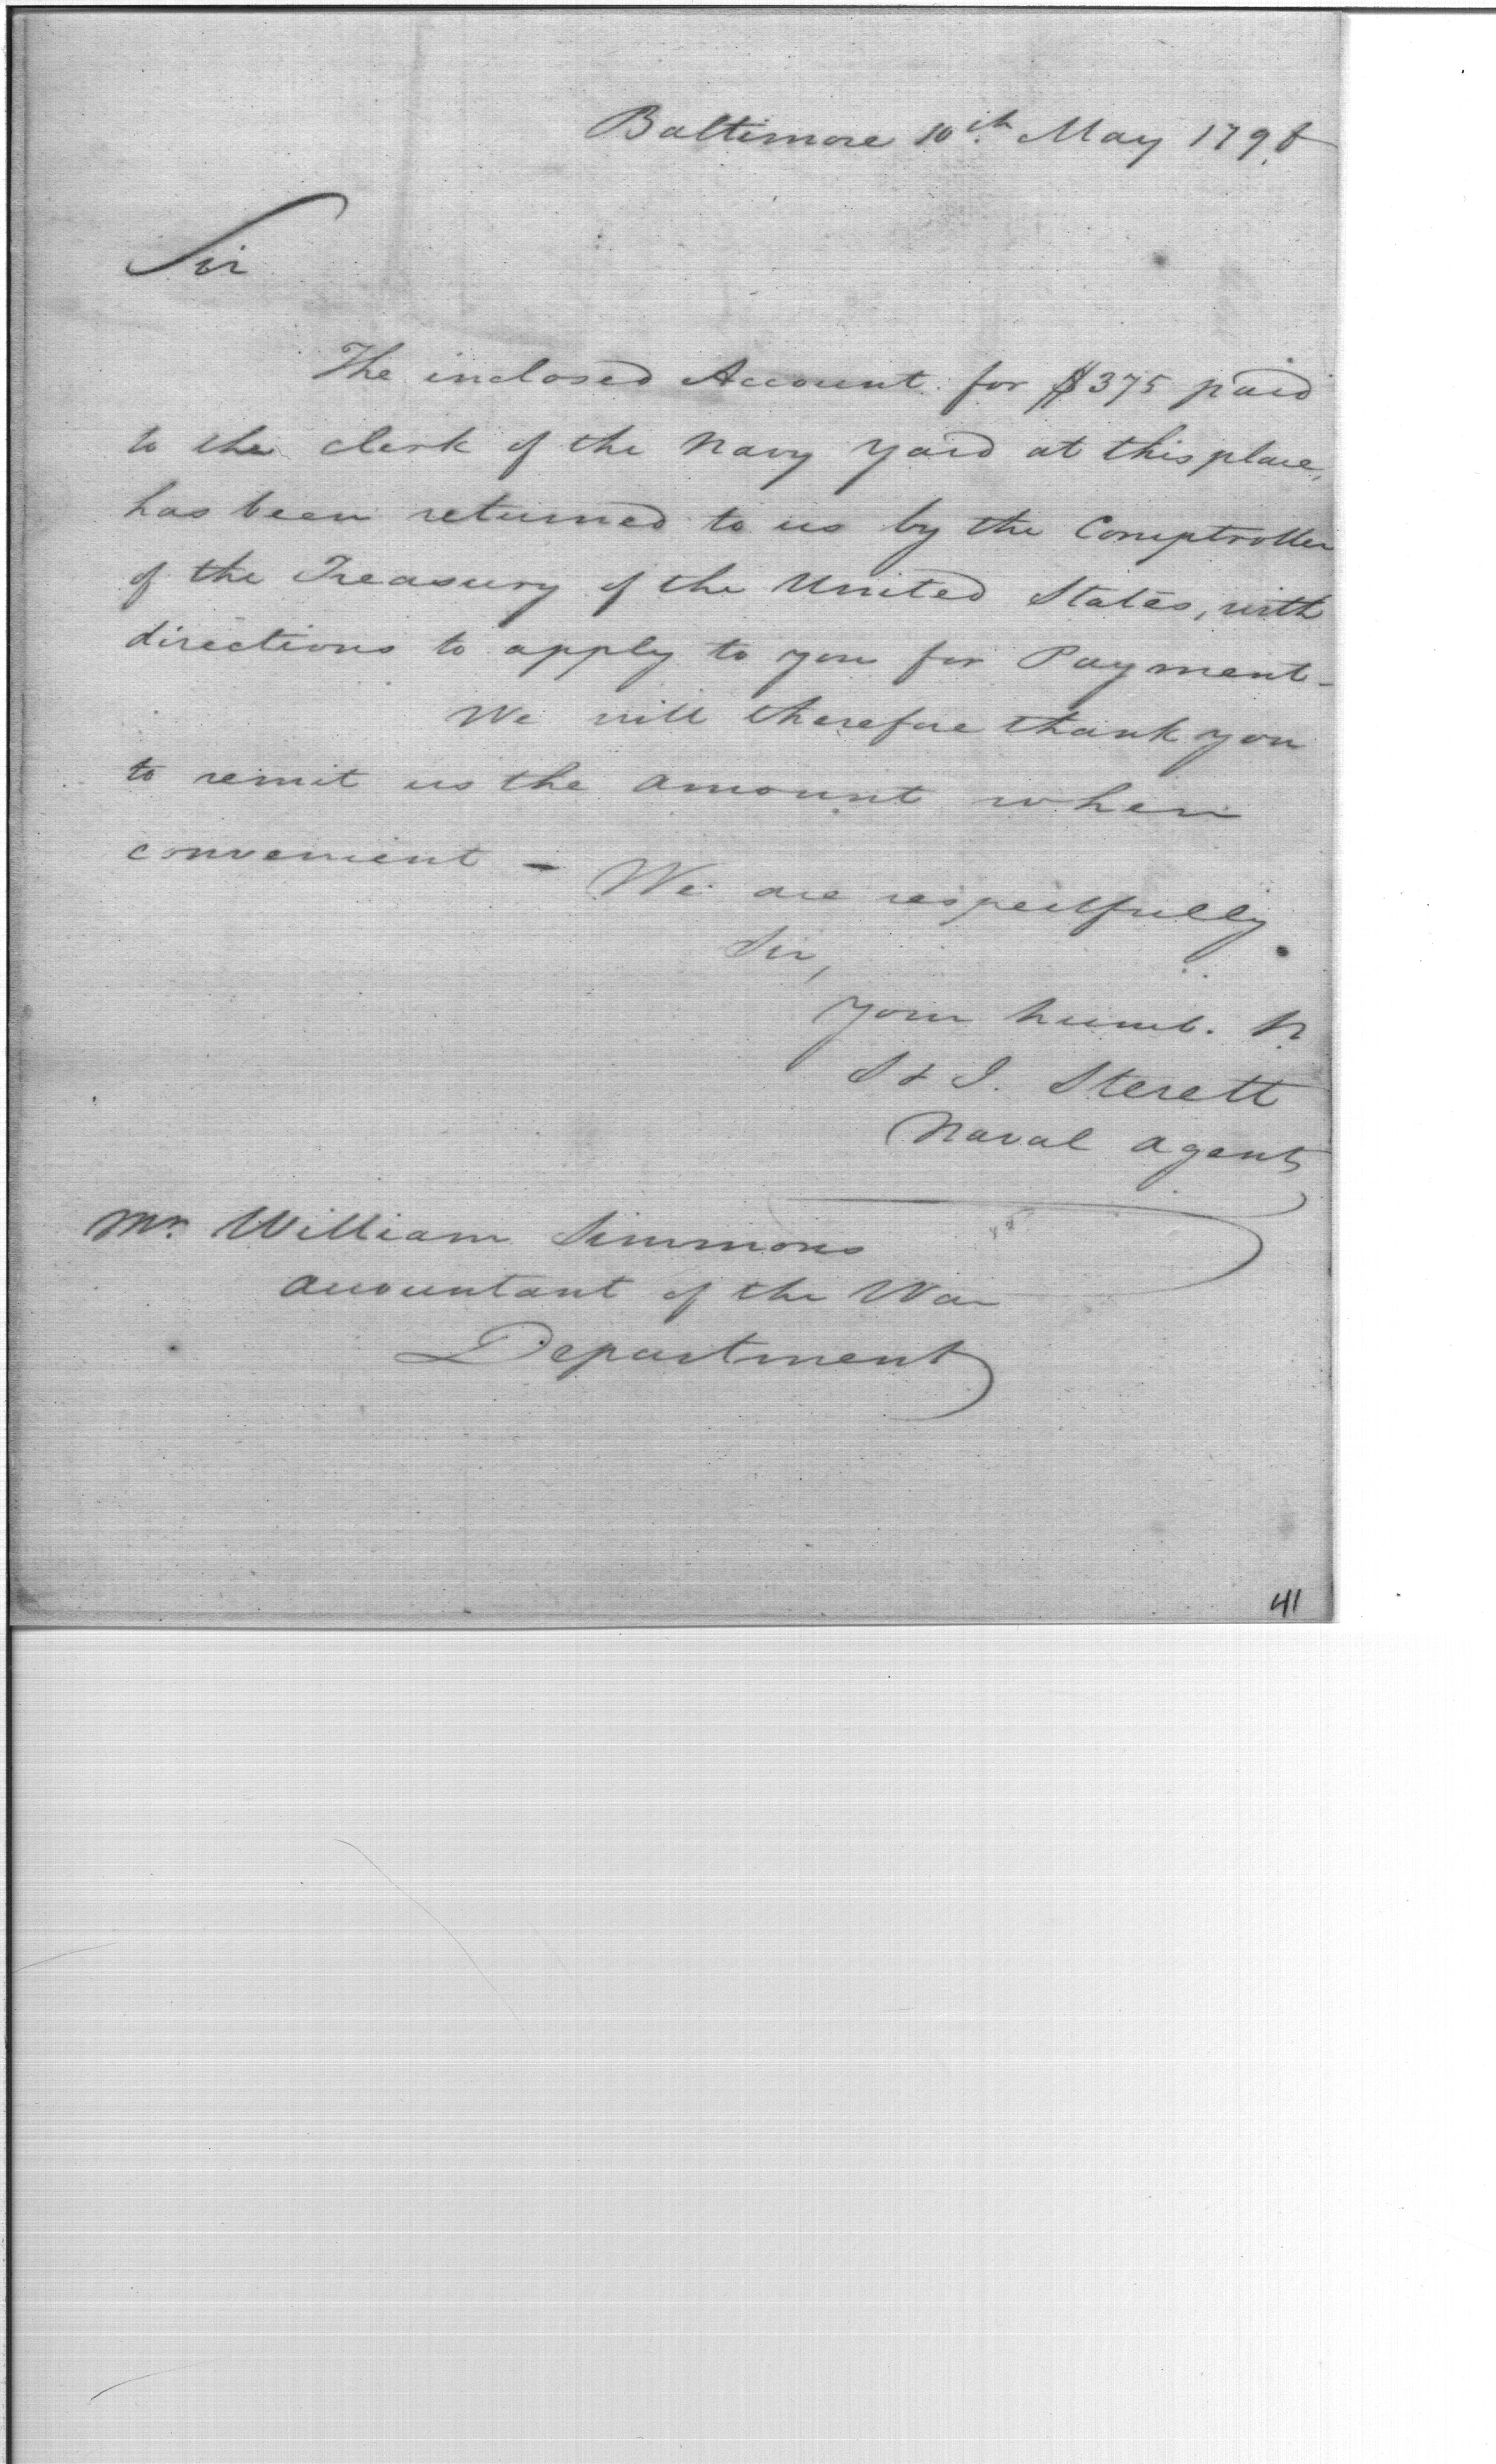 Baltimore 10th May 1798
Sir
The inclosed Account for $375 paid
to the clerk of the Navy Yard at this place,
has been returned to us by the Comptroller
of the Treasury of the United States, with
directions to apply to you for Payment-
We will therefore thank you
to remit us the amount when
convenient - We are respectfully
Sir,
Your humb.
S & J. Sterett
Naval Agents
Mr. William Simmons
Accountant of the War
Department
41